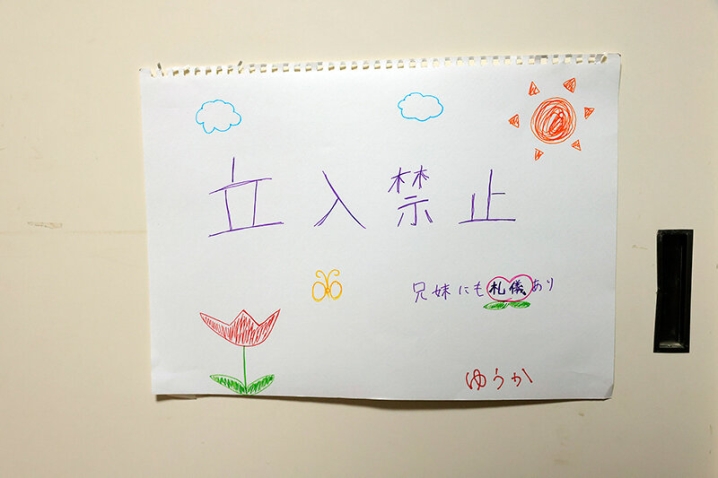 立入禁止
兄妹にも札儀あり
ゆうか